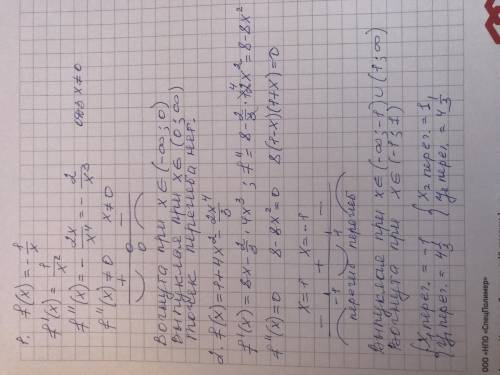 1. f(x) = -1/x
f'(x) = 1/x²
f''(x) = -2x/x⁴ = -2/x³
f''(x) ≠ 0 x ≠ 0 x ≠ 0
+ 0 -
0
Вогнута при x ∈ (-∞; 0)
Выпуклая при x ∈ (0; ∞)
Точек перегиба нет.
2. f(x) = 1 + 4x² - 2x⁴/3
f'(x) = 8x - 2/3 · 4x³ ; f'' = 8 - 2/3 · 12x² = 8 - 8x²
f''(x) = 0 8 - 8x² = 0 8(1-x)(1+x) = 0
x = 1 x = -1
- + -
-1 1
перегиб перегиб
Выпуклая при x ∈ (-∞; -1) ∪ (1; ∞)
Вогнута при x ∈ (-1; 1)
{ x₁ перег. = -1 { x₂ перег. = 1
{ y₁ перег. = 4 1/3 { y₂ перег. = 4 1/3
ООО «НПО «СпецПолимер»